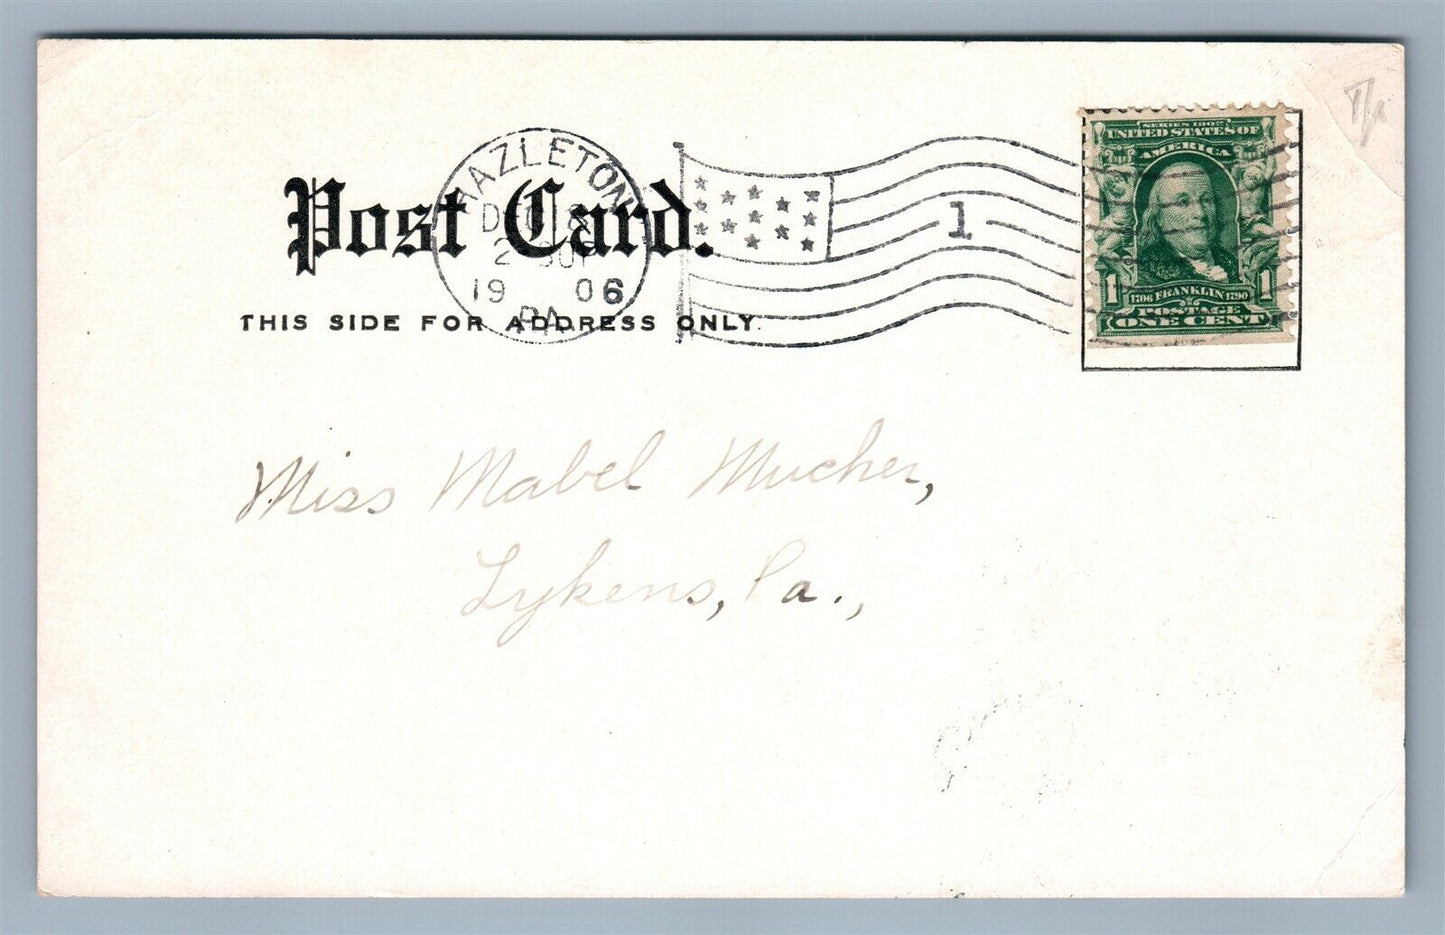 Post Card.
THIS SIDE FOR ADDRESS ONLY.
HAZLETON
19 06
PA
1
SERIES 1902
UNITED STATES OF
AMERICA
1 1706 FRANKLIN 1790 1
POSTAGE
ONE CENT
Miss Mabel Mucher,
Lykens, Pa.,